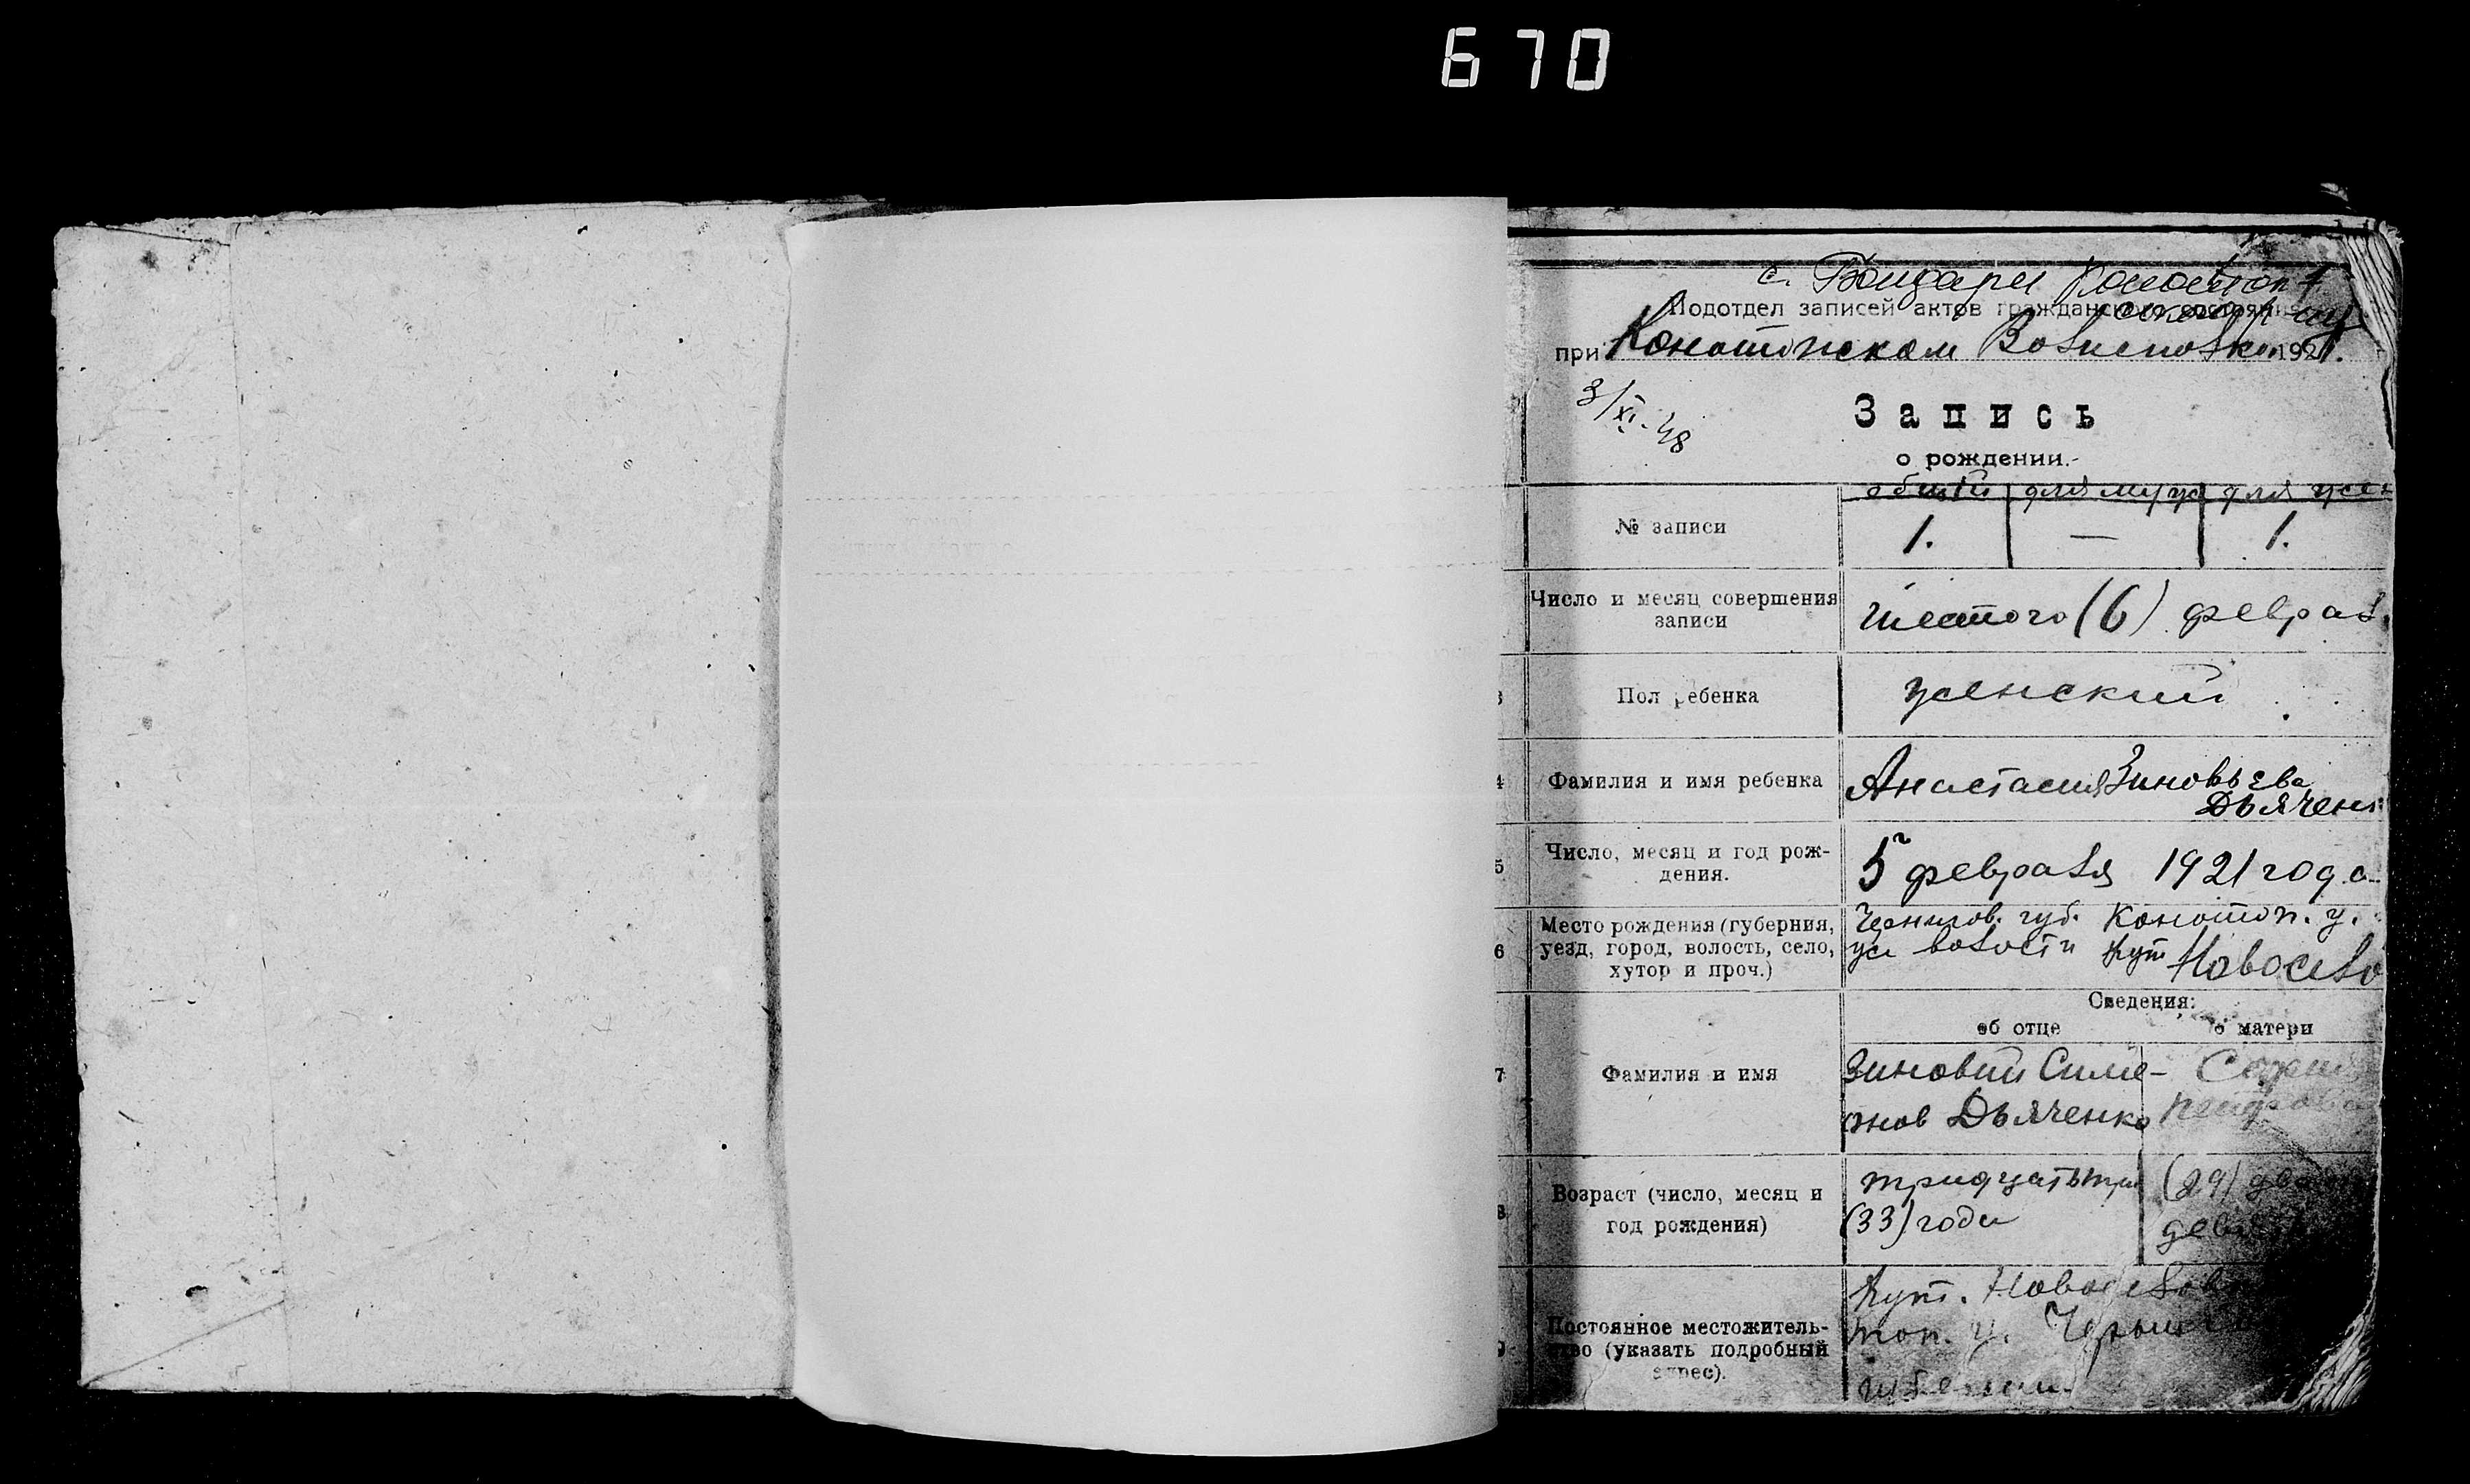 670
с. Бондари Конотоп
Подотдел записей актов гражданского состояния
при Конотопском Волисполком 1921.
3/XI.48
Запись
о рождении.
общий для муж для жен
№ записи 1. — 1.
Число и месяц совершения
записи
шестого (6) феврал.
3 Пол ребенка женский
4 Фамилия и имя ребенка Анастасия Зиновьева
Дьяченк
5 Число, месяц и год рож-
дения.
5го февраля 1921 года
6 Место рождения (губерния,
уезд, город, волость, село,
хутор и проч.)
Чернигов. губ. Конотоп. у.
волости хут Новосело
Сведения:
об отце о матери
7 Фамилия и имя
Зиновий Симе-
онов Дьяченко
София
8 Возраст (число, месяц и
год рождения)
тридцать три
(33) года
(29)
девять
9 Постоянное местожитель-
ство (указать подробный
адрес).
Хут.
топ. у.